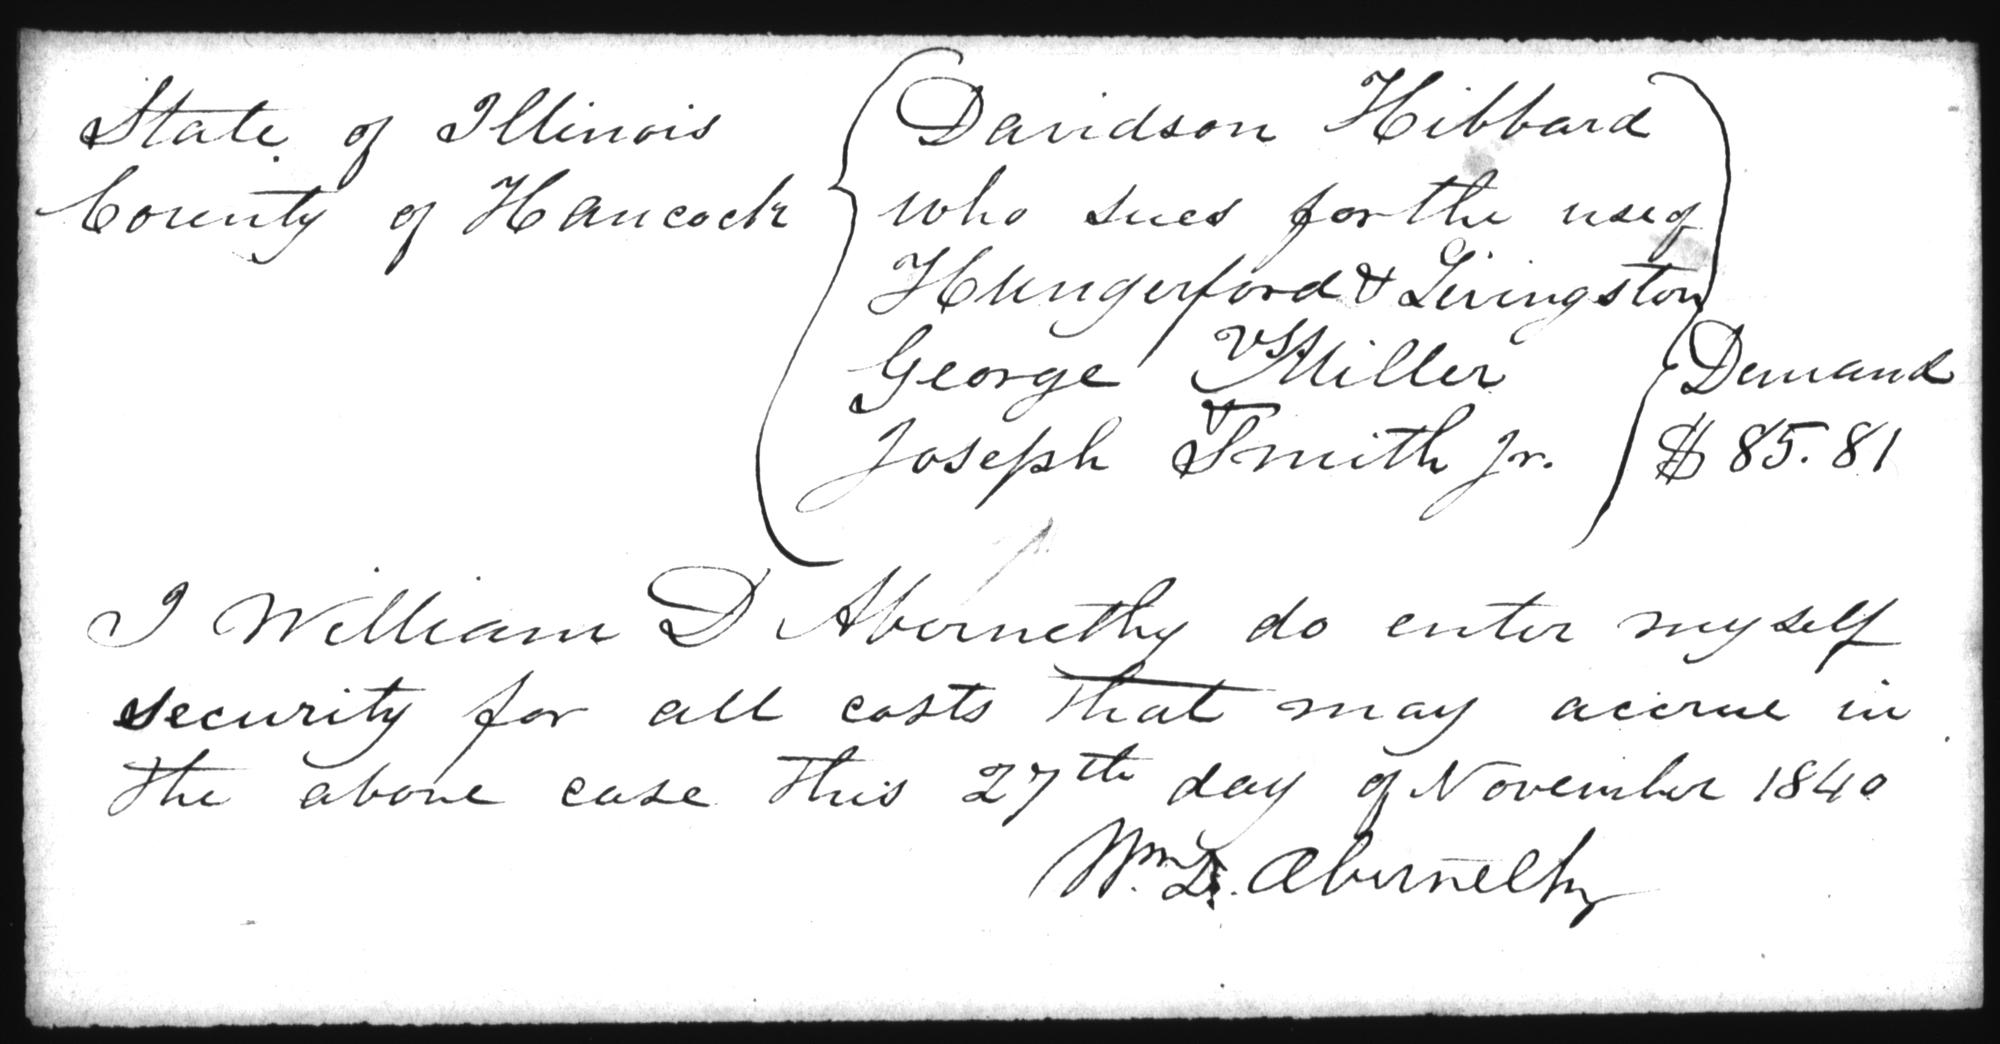 State of Illinois
County of Hancock
Davidson Hibbard
who sues for the use of
Hungerford & Livingston
vs.
George Miller
&
Joseph Smith Jr.
Demand
$85.81
I William D Abernethy do enter myself
security for all costs that may accrue in
the above case this 27th day of November 1840
Wm. D. Abernethy